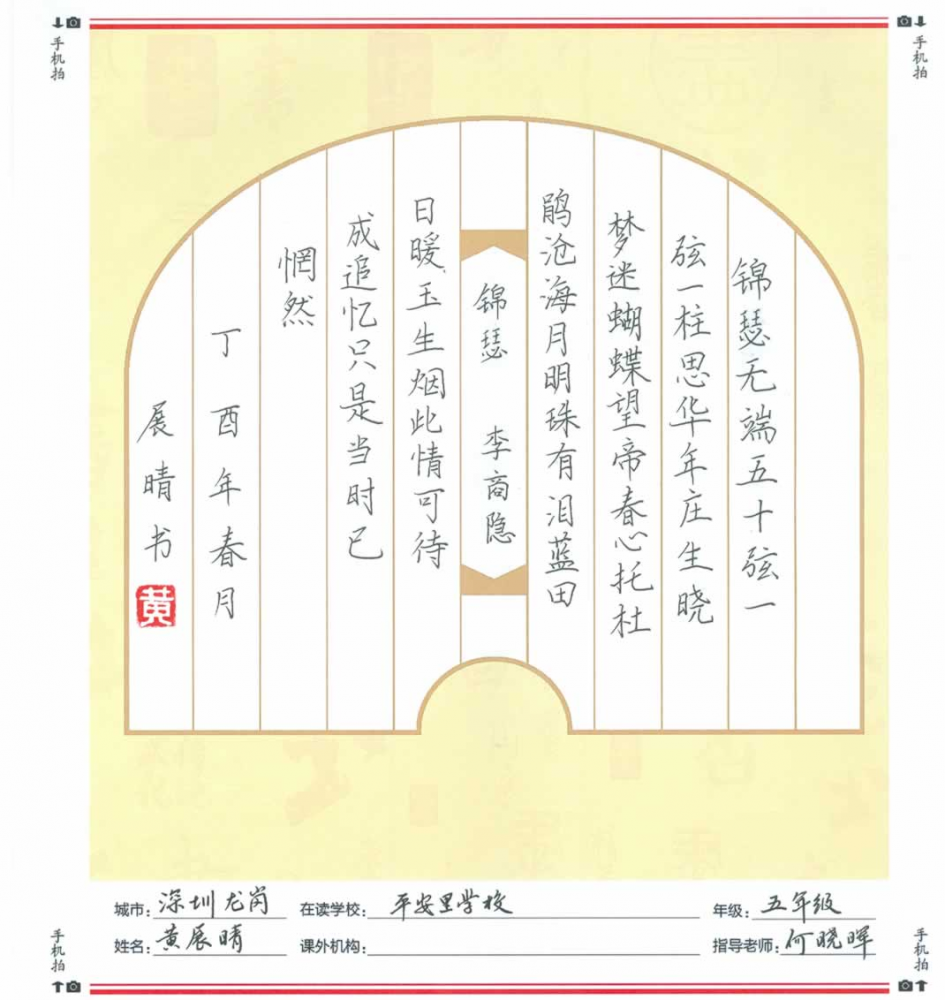 手机拍
手机拍
锦瑟无端五十弦一
弦一柱思华年庄生晓
梦迷蝴蝶望帝春心托杜
鹃沧海月明珠有泪蓝田
锦瑟 李商隐
日暖玉生烟此情可待
成追忆只是当时已
惘然
丁酉年春月
展晴书
黄
城市:深圳龙岗 在读学校:平安里学校 年级:五年级
姓名:黄展晴 课外机构: 指导老师:何晓晖
手机拍
手机拍